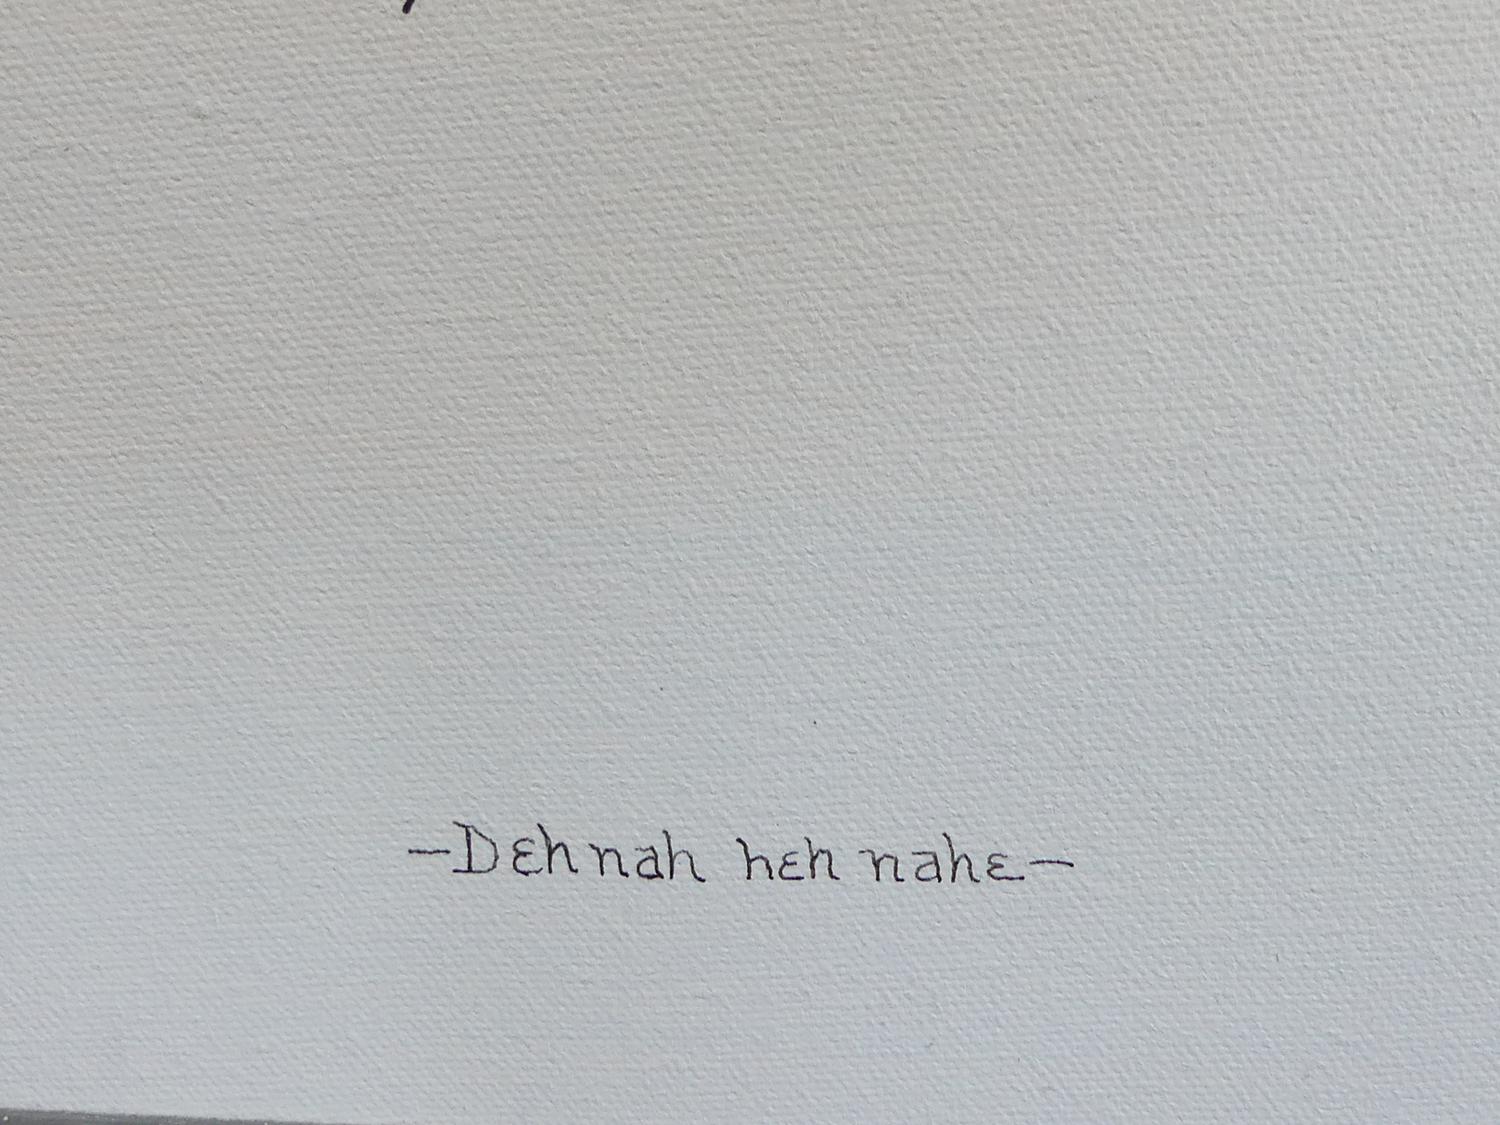 -Dεhnah hεh nahε-